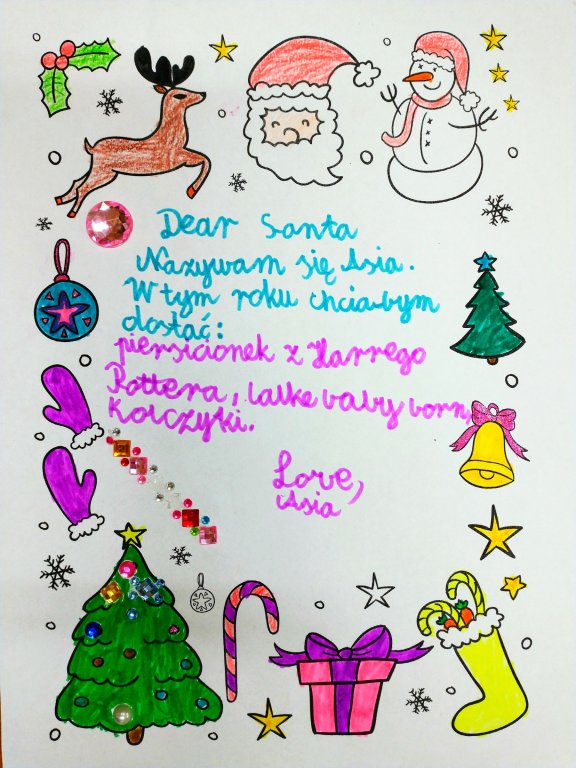 Dear Santa
Nazywam się Asia.
W tym roku chciabym
dostać:
piersicionek z Harrego
Pottera, lalke baby born,
Kolczyki.
Love,
Asia